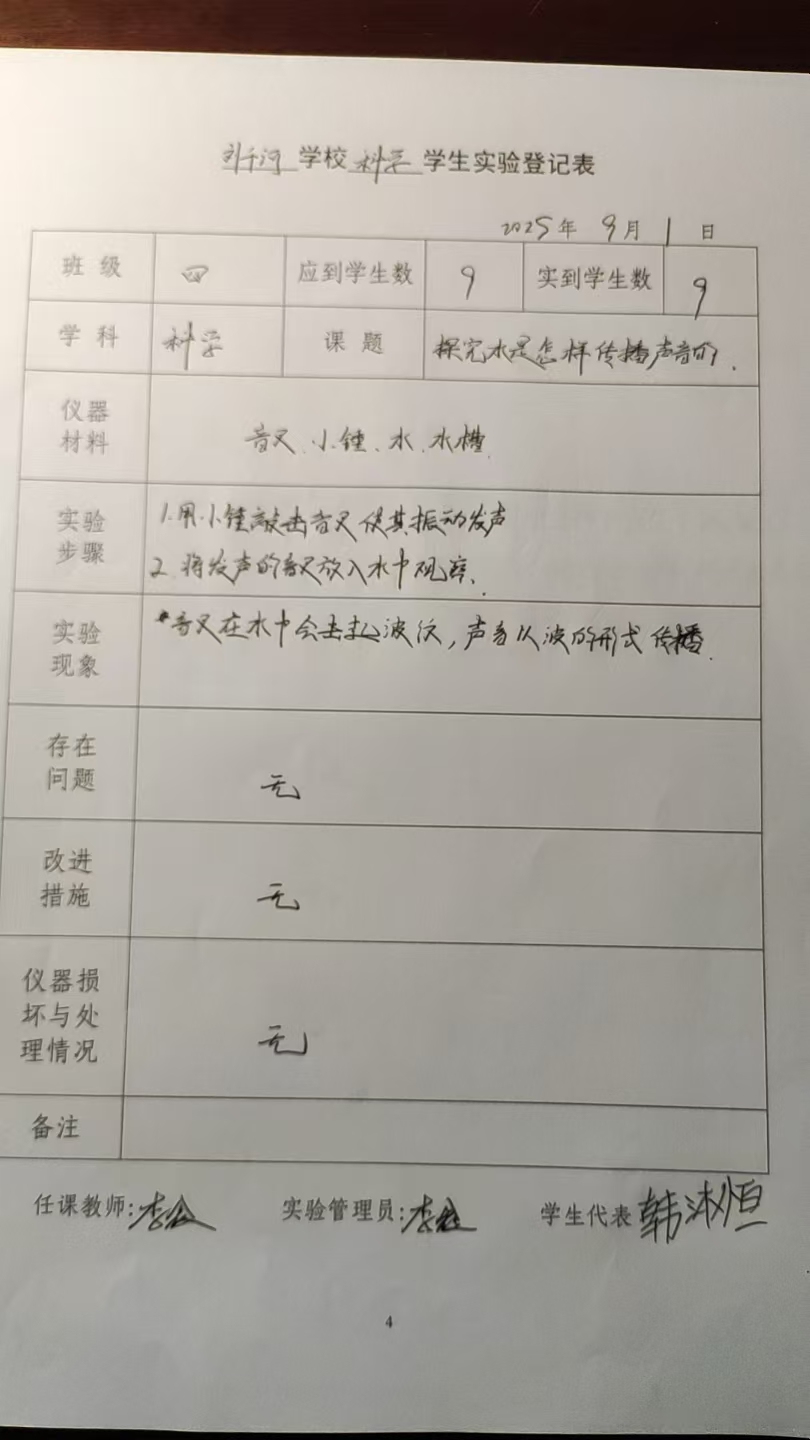 学校 科学 学生实验登记表
2025年 9月 1日
班级 四 应到学生数 9 实到学生数 9
学科 科学 课题 探究水是怎样传播声音的.
仪器材料 音叉、小锤、水、水槽
实验步骤 1.用小锤敲击音叉使其振动发声
2.将发声的音叉放入水中观察.
实验现象 音叉在水中会击起波纹,声音以波的形式传播.
存在问题 无
改进措施 无
仪器损坏与处理情况 无
备注
任课教师:李 实验管理员:李 学生代表 韩沐恒
4